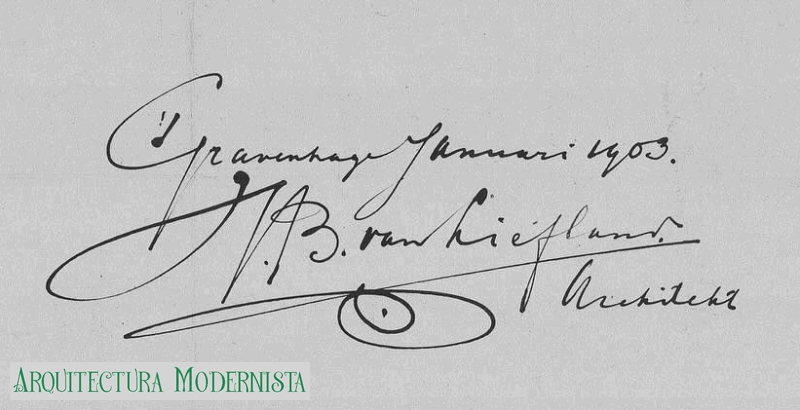 's Gravenhage Januari 1903.
W. B. van Liefland.
Architekt
ARQUITECTURA MODERNISTA